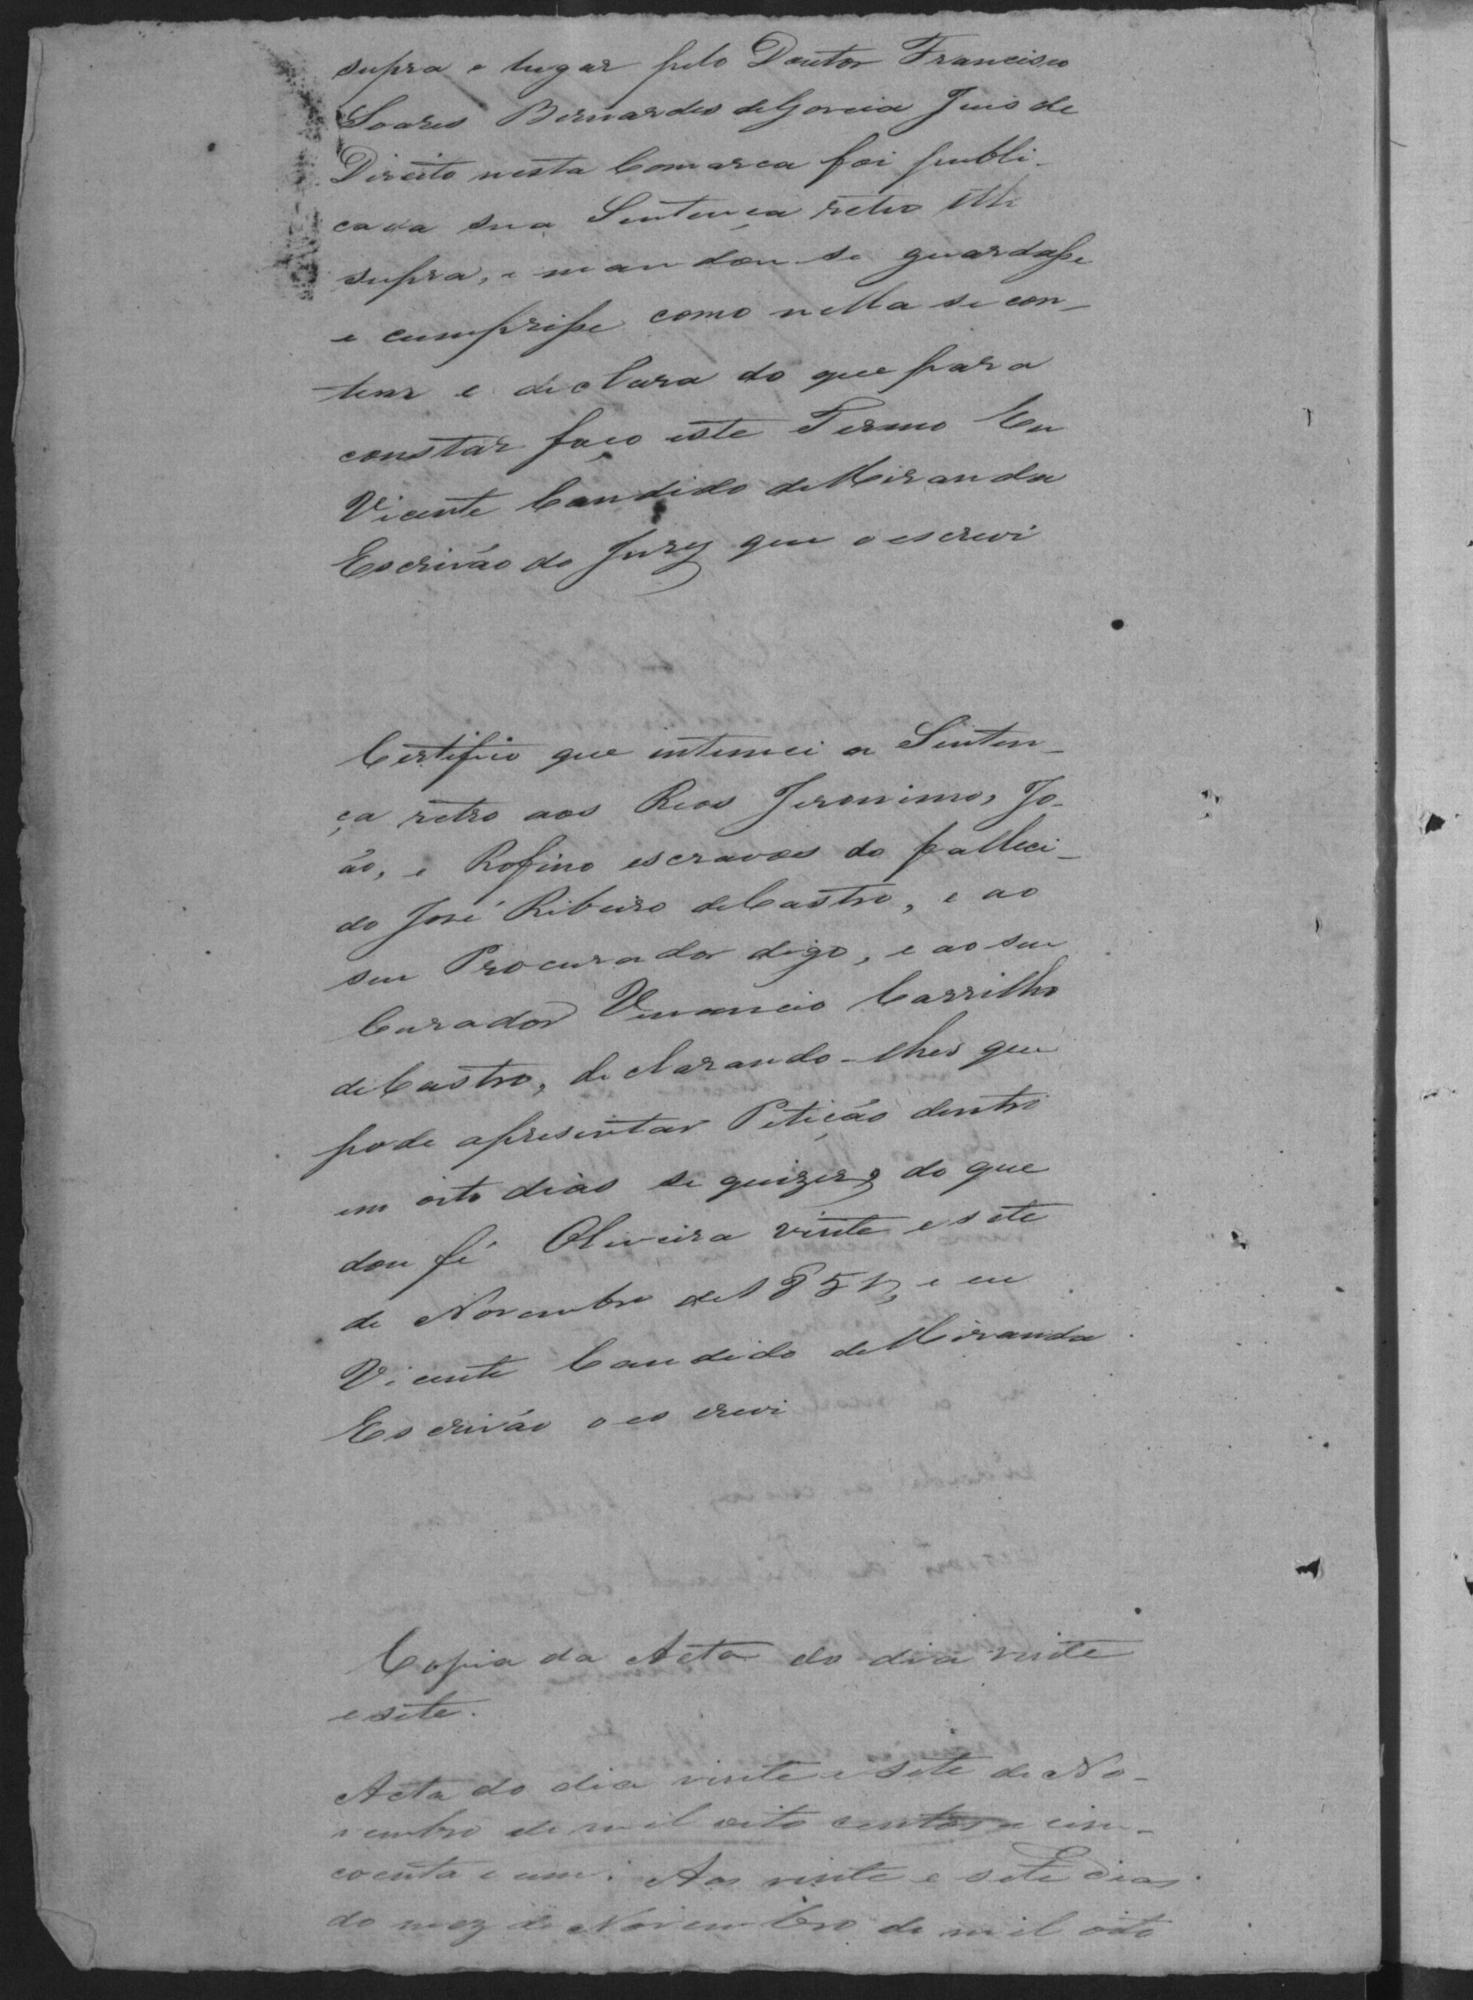 supra e lugar pelo Doutor Francisco
Soares Bernardes de Gouveia Juis de
Direito nesta Comarca foi publi-
cada sua Sentença retro
supra, e mandou se guardasse
e cumprisse como nella se con-
tem e declara do que para
constar faço este Termo Eu
Vicente Candido de Miranda
Escrivão do Jury que o escrevi
Certifico que intimei a Senten-
ça retro aos Reos Jeronimo, Jo-
ão, e Rofino escravos do falleci-
do José Ribeiro de Castro, e ao
seu Procurador digo, e ao seu
Curador Venancio Carrilho
de Castro, declarando-lhes que
pode apresentar Petição dentro
em oito dias se quizer do que
dou fé Oliveira vinte e sete
de Novembro de 1851, e eu
Vicente Candido de Miranda
Escrivão o escrevi
Copia da Acta do dia vinte
e sete.
Acta do dia vinte e sete de No-
vembro de mil oito centos e cin-
coenta e um. Aos vinte e sete dias
do mez de Novembro de mil oito